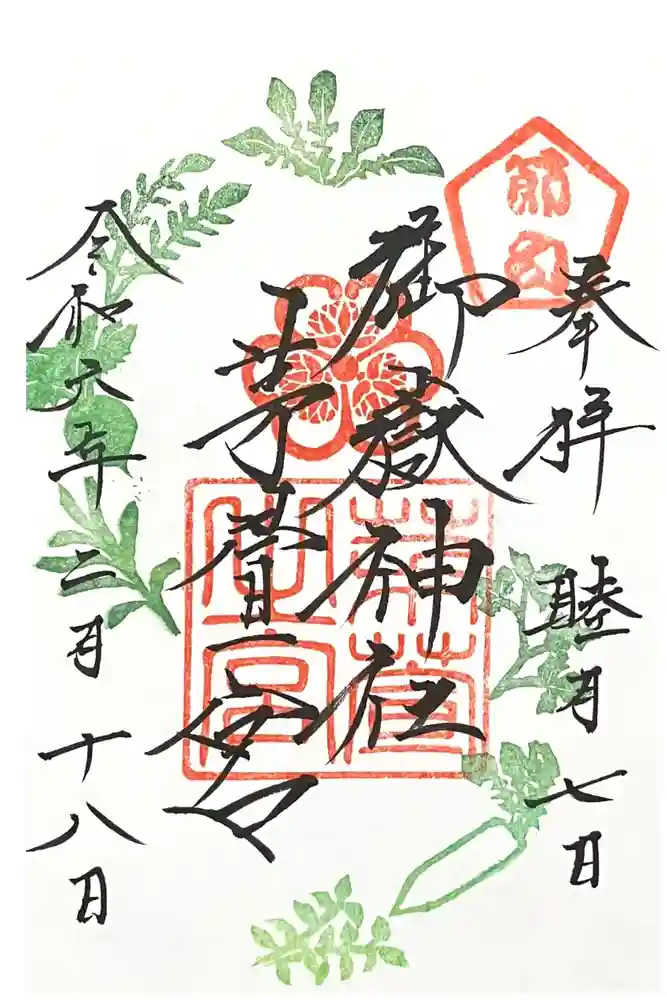 節句
奉拝
睦月七日
御嶽神社
茅萱宮
令和六年二月十八日